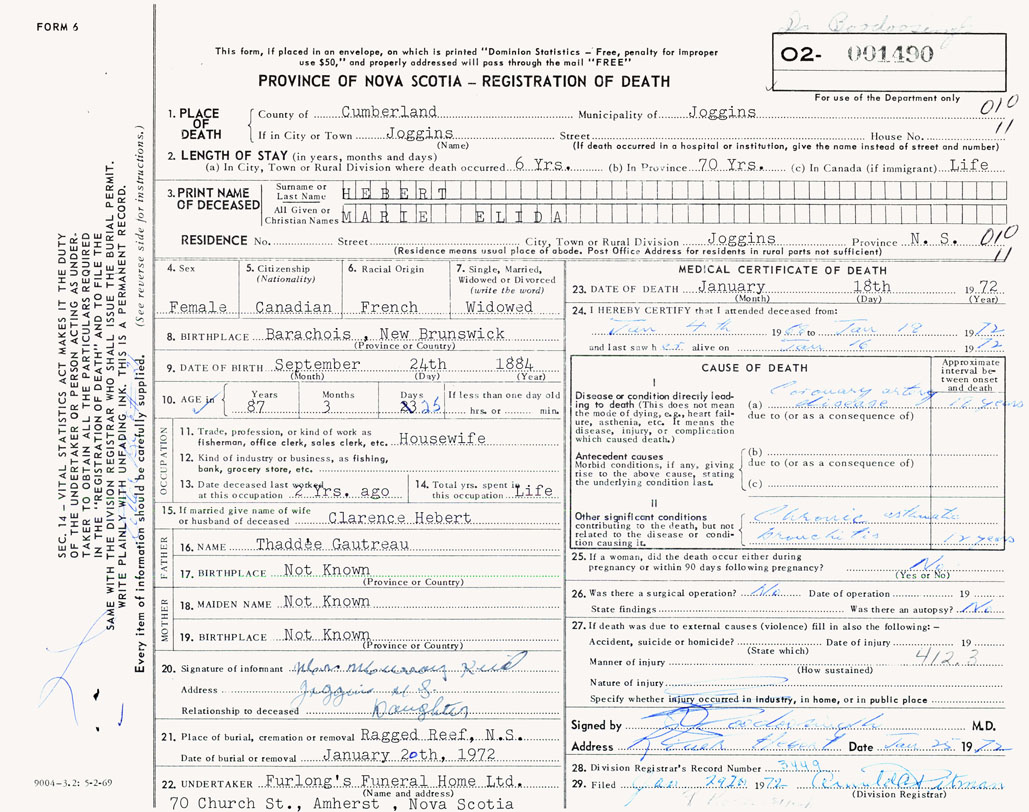 FORM 6
O2- 001490
For use of the Department only
This form, if placed in an envelope, on which is printed "Dominion Statistics – Free, penalty for improper
use $50," and properly addressed will pass through the mail "FREE"
PROVINCE OF NOVA SCOTIA – REGISTRATION OF DEATH
010
11
1. PLACE OF DEATH County of Cumberland Municipality of Joggins
If in City or Town Joggins Street House No.
(Name) (If death occurred in a hospital or institution, give the name instead of street and number)
2. LENGTH OF STAY (in years, months and days)
(a) In City, Town or Rural Division where death occurred 6 Yrs. (b) In Province 70 Yrs. (c) In Canada (if immigrant) Life
3. PRINT NAME OF DECEASED Surname or Last Name HEBERT
All Given or Christian Names MARIE ELIDA
RESIDENCE No. Street City, Town or Rural Division Joggins Province N. S. 010
11
(Residence means usual place of abode. Post Office Address for residents in rural parts not sufficient)
4. Sex Female
5. Citizenship (Nationality) Canadian
6. Racial Origin French
7. Single, Married, Widowed or Divorced (write the word) Widowed
8. BIRTHPLACE Barachois , New Brunswick
(Province or Country)
9. DATE OF BIRTH September 24th 1884
(Month) (Day) (Year)
10. AGE in Years 87 Months 3 Days 25 If less than one day old hrs. or min.
OCCUPATION
11. Trade, profession, or kind of work as
fisherman, office clerk, sales clerk, etc. Housewife
12. Kind of industry or business, as fishing,
bank, grocery store, etc.
13. Date deceased last worked
at this occupation 2 Yrs. ago
14. Total yrs. spent in
this occupation Life
15. If married give name of wife
or husband of deceased Clarence Hebert
FATHER
16. NAME Thaddée Gautreau
17. BIRTHPLACE Not Known
(Province or Country)
MOTHER
18. MAIDEN NAME Not Known
19. BIRTHPLACE Not Known
(Province or Country)
20. Signature of informant Mrs. Murray Reid
Address Joggins N.S.
Relationship to deceased Daughter
21. Place of burial, cremation or removal Ragged Reef, N.S.
Date of burial or removal January 20th, 1972
22. UNDERTAKER Furlong's Funeral Home Ltd.
(Name and address)
70 Church St., Amherst , Nova Scotia
MEDICAL CERTIFICATE OF DEATH
23. DATE OF DEATH January 18th 1972
(Month) (Day) (Year)
24. I HEREBY CERTIFY that I attended deceased from:
Jan 4th 19 to Jan 18 1972
and last saw h er alive on Jan 16 1972
CAUSE OF DEATH
Approximate interval between onset and death
I
Disease or condition directly leading to death (This does not mean the mode of dying, e.g., heart failure, asthenia, etc. It means the disease, injury, or complication which caused death.)
(a) Coronary artery disease 12 years
due to (or as a consequence of)
Antecedent causes
Morbid conditions, if any, giving rise to the above cause, stating the underlying condition last.
(b)
due to (or as a consequence of)
(c)
II
Other significant conditions contributing to the death, but not related to the disease or condition causing it.
Chronic asthmatic
bronchitis 12 years
25. If a woman, did the death occur either during
pregnancy or within 90 days following pregnancy? No
(Yes or No)
26. Was there a surgical operation? No Date of operation 19
State findings Was there an autopsy? No
27. If death was due to external causes (violence) fill in also the following: –
Accident, suicide or homicide? Date of injury 19
(State which)
412.3
Manner of injury
(How sustained)
Nature of injury
Specify whether injury occurred in industry, in home, or in public place
Signed by M.D.
Address Date Jan 25 1972
28. Division Registrar's Record Number 3449
29. Filed Jan 29th 1972
(Division Registrar)
SEC. 14 – VITAL STATISTICS ACT MAKES IT THE DUTY
OF THE UNDERTAKER OR PERSON ACTING AS UNDER-
TAKER TO OBTAIN ALL THE PARTICULARS REQUIRED
IN THE "REGISTRATION OF DEATH" AND TO FILE THE
SAME WITH THE DIVISION REGISTRAR WHO SHALL ISSUE THE BURIAL PERMIT.
WRITE PLAINLY WITH UNFADING INK. THIS IS A PERMANENT RECORD.
Every item of information should be carefully supplied. (See reverse side for instructions.)
9004-3.2: 5-2-69